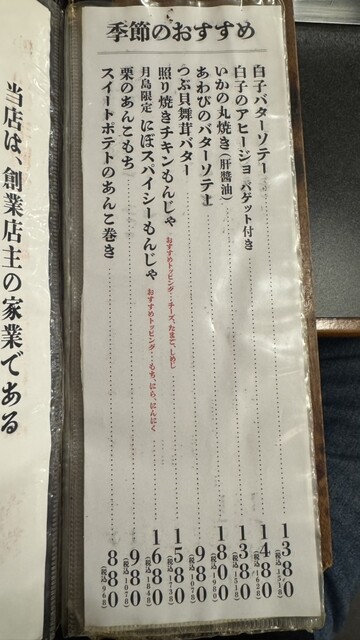 季節のおすすめ
白子バターソテー 1380 (税込1518)
白子のアヒージョ バゲット付き 1480 (税込1628)
いかの丸焼き(肝醤油) 1380 (税込1518)
あわびのバターソテー 1800 (税込1980)
つぶ貝舞茸バター 980 (税込1078)
照り焼きチキンもんじゃ おすすめトッピング…チーズ、たまご、しめじ 1580 (税込1738)
月島限定 にぼスパイシーもんじゃ おすすめトッピング…もち、にら、にんにく 1680 (税込1848)
栗のあんこもち 980 (税込1078)
スイートポテトのあんこ巻き 880 (税込968)
当店は、創業店主の家業である